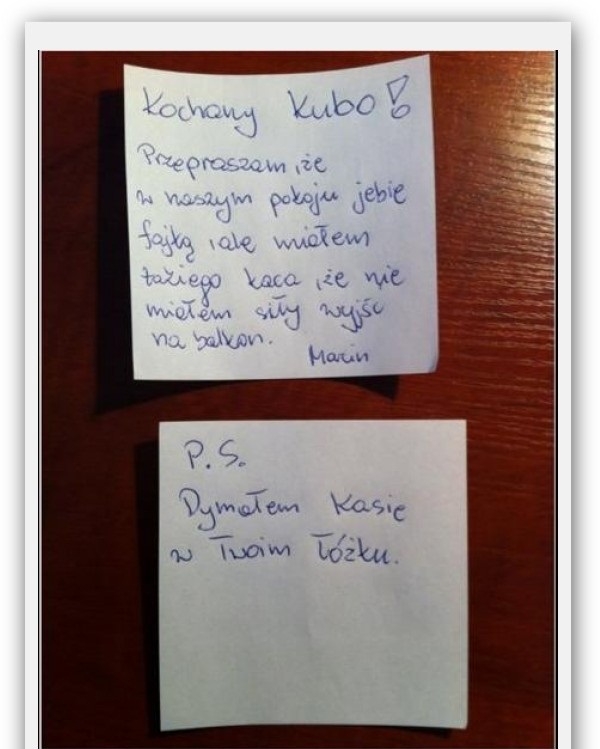 Kochany Kubo!
Przepraszam, że
w naszym pokoju jebie
fajką, ale miałem
takiego kaca, że nie
miałem siły wyjść
na balkon.
Marcin
P.S.
Dymałem Kasię
w Twoim łóżku.